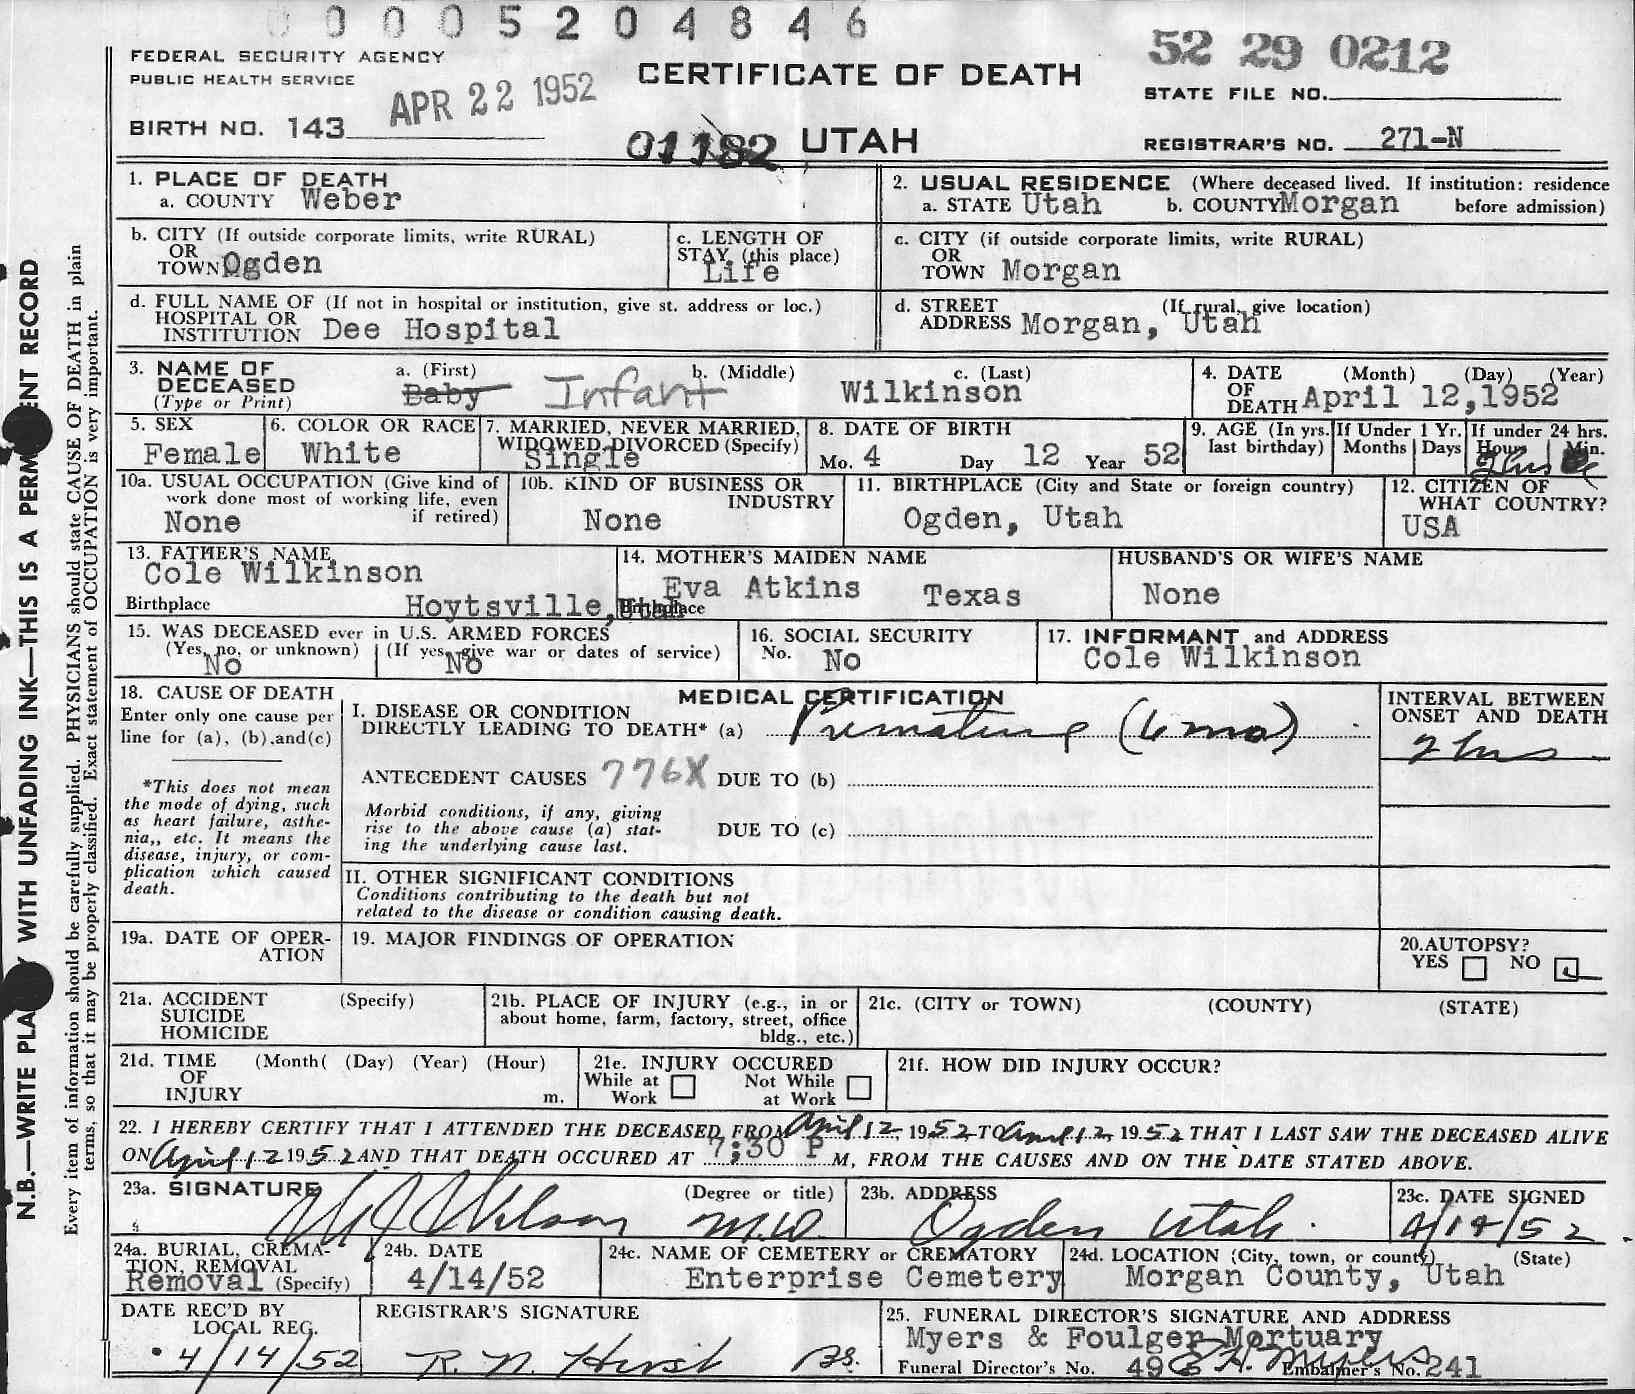 0 0 0 0 5 2 0 4 8 4 6
FEDERAL SECURITY AGENCY
PUBLIC HEALTH SERVICE
APR 22 1952
BIRTH NO. 143
CERTIFICATE OF DEATH
01182 UTAH
52 29 0212
STATE FILE NO.
REGISTRAR'S NO. 271-N
1. PLACE OF DEATH
a. COUNTY Weber
2. USUAL RESIDENCE (Where deceased lived. If institution: residence
a. STATE Utah b. COUNTY Morgan before admission)
b. CITY (If outside corporate limits, write RURAL)
OR
TOWN Ogden
c. LENGTH OF
STAY (this place)
Life
c. CITY (if outside corporate limits, write RURAL)
OR
TOWN Morgan
d. FULL NAME OF (If not in hospital or institution, give st. address or loc.)
HOSPITAL OR
INSTITUTION Dee Hospital
d. STREET (If rural, give location)
ADDRESS Morgan, Utah
3. NAME OF
DECEASED
(Type or Print)
a. (First) b. (Middle) c. (Last)
Baby Infant Wilkinson
4. DATE (Month) (Day) (Year)
OF
DEATH April 12, 1952
5. SEX
Female
6. COLOR OR RACE
White
7. MARRIED, NEVER MARRIED,
WIDOWED, DIVORCED (Specify)
Single
8. DATE OF BIRTH
Mo. 4 Day 12 Year 52
9. AGE (In yrs.
last birthday)
If Under 1 Yr.
Months Days
If under 24 hrs.
Hours Min.
2 hrs
10a. USUAL OCCUPATION (Give kind of
work done most of working life, even
if retired)
None
10b. KIND OF BUSINESS OR
INDUSTRY
None
11. BIRTHPLACE (City and State or foreign country)
Ogden, Utah
12. CITIZEN OF
WHAT COUNTRY?
USA
13. FATHER'S NAME
Cole Wilkinson
Birthplace Hoytsville, Utah
14. MOTHER'S MAIDEN NAME
Eva Atkins Texas
Birthplace
HUSBAND'S OR WIFE'S NAME
None
15. WAS DECEASED ever in U.S. ARMED FORCES
(Yes, no, or unknown) (If yes, give war or dates of service)
No No
16. SOCIAL SECURITY
No. No
17. INFORMANT and ADDRESS
Cole Wilkinson
18. CAUSE OF DEATH
Enter only one cause per
line for (a), (b), and (c)
*This does not mean
the mode of dying, such
as heart failure, asthe-
nia,, etc. It means the
disease, injury, or com-
plication which caused
death.
MEDICAL CERTIFICATION
I. DISEASE OR CONDITION
DIRECTLY LEADING TO DEATH* (a) Premature (6 mo)
ANTECEDENT CAUSES 776X DUE TO (b)
Morbid conditions, if any, giving
rise to the above cause (a) stat-
ing the underlying cause last.
DUE TO (c)
II. OTHER SIGNIFICANT CONDITIONS
Conditions contributing to the death but not
related to the disease or condition causing death.
INTERVAL BETWEEN
ONSET AND DEATH
2 hrs
19a. DATE OF OPER-
ATION
19. MAJOR FINDINGS OF OPERATION
20. AUTOPSY?
YES NO
21a. ACCIDENT (Specify)
SUICIDE
HOMICIDE
21b. PLACE OF INJURY (e.g., in or
about home, farm, factory, street, office
bldg., etc.)
21c. (CITY or TOWN) (COUNTY) (STATE)
21d. TIME (Month( (Day) (Year) (Hour)
OF
INJURY m.
21e. INJURY OCCURED
While at Not While
Work at Work
21f. HOW DID INJURY OCCUR?
22. I HEREBY CERTIFY THAT I ATTENDED THE DECEASED FROM April 12, 1952 TO April 12, 1952 THAT I LAST SAW THE DECEASED ALIVE
ON April 12 1952 AND THAT DEATH OCCURED AT 7:30 P M, FROM THE CAUSES AND ON THE DATE STATED ABOVE.
23a. SIGNATURE (Degree or title)
Wilson M.D.
23b. ADDRESS
Ogden Utah.
23c. DATE SIGNED
4/14/52
24a. BURIAL, CREMA-
TION, REMOVAL
Removal (Specify)
24b. DATE
4/14/52
24c. NAME OF CEMETERY or CREMATORY
Enterprise Cemetery
24d. LOCATION (City, town, or county) (State)
Morgan County, Utah
DATE REC'D BY
LOCAL REG.
4/14/52
REGISTRAR'S SIGNATURE
R. N. Hirst
25. FUNERAL DIRECTOR'S SIGNATURE AND ADDRESS
Myers & Foulger Mortuary
Funeral Director's No. 49 Embalmer's No. 241
N.B.—WRITE PLA WITH UNFADING INK—THIS IS A PERM ENT RECORD
Every item of information should be carefully supplied. PHYSICIANS should state CAUSE OF DEATH in plain
terms, so that it may be properly classified. Exact statement of OCCUPATION is very important.